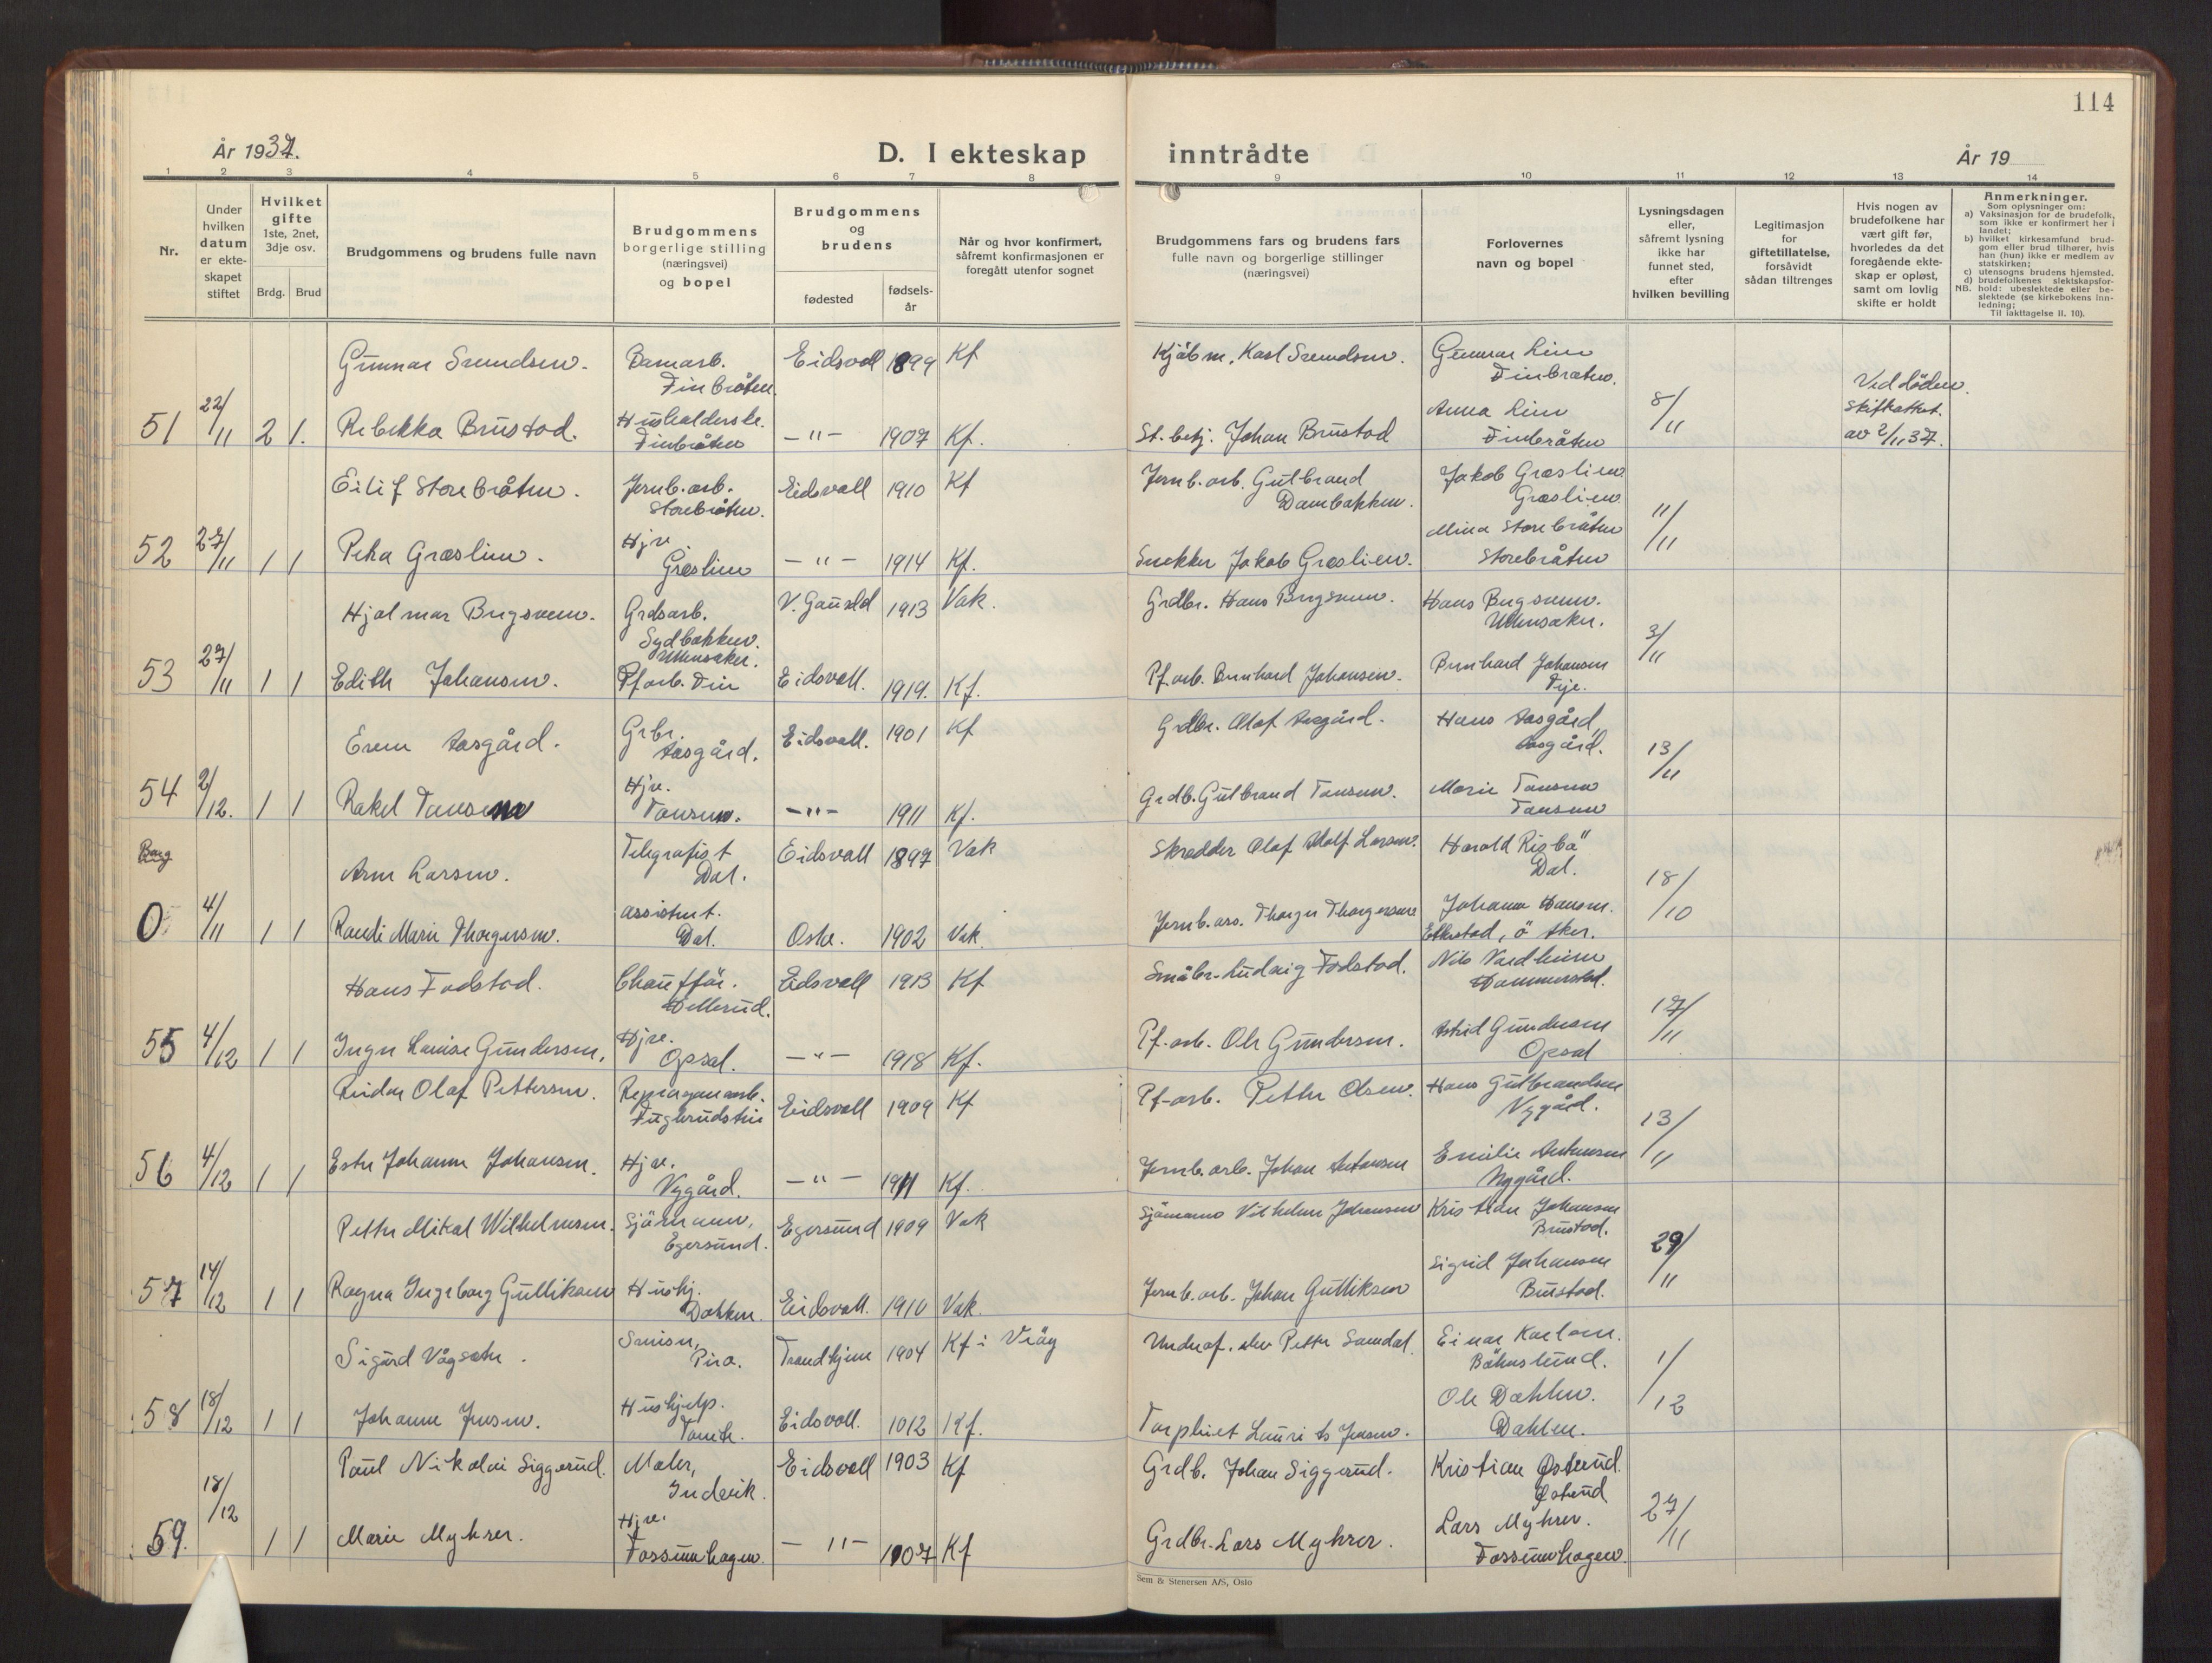 114
År 1937.
D. I ekteskap inntrådte
År 19
1 2 3 4 5 6 7 8 9 10 11 12 13 14
Nr.
Under
hvilken
datum
er ekte-
skapet
stiftet
Hvilket
gifte
1ste, 2net,
3dje osv.
Brdg. Brud
Brudgommens og brudens fulle navn
Brudgommens
borgerlige stilling
(næringsvei)
og bopel
Brudgommens
og
brudens
fødested
fødsels-
år
Når og hvor konfirmert,
såfremt konfirmasjonen er
foregått utenfor sognet
Brudgommens fars og brudens fars
fulle navn og borgerlige stillinger
(næringsvei)
Forlovernes
navn og bopel
Lysningsdagen
eller,
såfremt lysning
ikke har
funnet sted,
efter
hvilken bevilling
Legitimasjon
for
giftetillatelse,
forsåvidt
sådan tiltrenges
Hvis nogen av
brudefolkene har
vært gift før,
hvorledes da det
foregående ekte-
skap er opløst,
samt om lovlig
skifte er holdt
Anmerkninger.
Som oplysninger om:
a) Vaksinasjon for de brudefolk,
som ikke er konfirmert her i
landet;
b) hvilket kirkesamfund brud-
gom eller brud tilhører, hvis
han (hun) ikke er medlem av
statskirken;
c) utensogns brudens hjemsted.
d) brudefolkenes slektskapsfor-
NB. hold: ubeslektede eller be-
slektede (se kirkebokens inn-
ledning;
Til iakttagelse II. 10).
Gunnar Svendsen. Damarb. Eidsvoll 1899 Kf Kjøbm. Karl Svendsen. Gunnar Lien
Finbråten. Finbråten.
51 22/11 2 1. Rebekka Brustad. Husholderske. Finbråten —"— 1907 Kf. St. betj. Johan Brustad Anna Lien Finbråten 8/11
Ved döden.
Skifteattest.
av 2/11 37.
Eilif Storebråten. Jernb.arb. Storebråten. Eidsvoll 1910 Kf Jernb. arb. Gutbrand Dambakken. Jakob Græslien Græslien
52 27/11 1 1 Petra Græslien. Hjv. Græslien —"— 1914 Kf. Snekker Jakob Græslien. Mina Storebråten Storebråten 11/11
Hjalmar Bugsveen. Grdsarb. Sydbakken. Ullensaker. V. Gausdal 1913 Vak. Grdbr. Hans Bugsveen. Hans Bugsveen. Ullensaker.
53 27/11 1 1 Edith Johansen. Pf.arb. Fin Eidsvoll. 1919. Kf. Pf.arb. Bernhard Johansen. Bernhard Johansen Tije. 3/11
Even Aasgård. Grbr. Aasgård. Eidsvoll. 1901 Kf Grdbr. Olaf Aasgård. Hans Aasgård, Aasgård.
54 2/12. 1 1 Rakel Tansem Hjv. Tansem. —"— 1911 Kf. Grdb. Gutbrand Tansem. Marie Tansem Tansem 13/11
Borg
Arne Larsen. Telegrafist Dal. Eidsvoll 1897 Vak Skredder Olaf Adolf Larsen. Harald Risbä Dal.
0 4/11 1 1 Randi Marie Thorgersen. assistent. Dal. Oslo. 1902 Vak. Jernb. ass. Thorger Thorgersen Johanne Hansen. Elkestad, ö Aker. 18/10
Hans Fodstad. Chaufför. Hellerud. Eidsvoll 1913 Kf Småbr. Ludvig Fodstad. Nils Nordheim Hammerstad.
55 4/12 1 1 Inger Lovise Gundersen. Hjv. Opsal. —"— 1918 Kf. Pf.-arb. Ole Gundersen. Astrid Gundersen Opsal 17/11
Reidar Olaf Pettersen. Eidsvoll 1909 Kf Pf-arb. Petter Olsen. Hans Gutbrandsen Nygård.
56 4/12 1 1 Ester Johanne Johansen. Hjv. Nygård. —"— 1911 Kf. Jernb. arb. Johan Antonsen Emilie Antonsen Nygård. 13/11
Petter Mikal Wilhelmsen. Sjömann, Egersund. Egersund 1909 Vak Sjömann Vilhelm Johansen Kristian Johansen Brustad.
57 14/12 1 1 Ragna Ingeborg Gulliksen Hushj. Dokken. Eidsvoll. 1910 Vak. Jernb. arb. Johan Gulliksen Sigrid Johansen Brustad. 29/11
Sigurd Vågsæter. Snision, Piro. Trondhjem 1904 Kf i Vråg Underof. elev Petter Samdal. Einar Karlsen. Båhnslund.
58 18/12 1 1 Johanne Jensen. Hushjelp. Eidsvoll. 1912 Kf. Laurits Jensen. Ole Dahlen. Dahlen. 1/12
Paul Nikolai Siggerud. Maler, Indvik. Eidsvoll 1903 Kf Grdb. Johan Siggerud. Kristian Østerud. Østerud
59. 18/12 1 1 Marie Myhrer. Hjv. Fossumhagen. —"— 1907 Kf Grdbr. Lars Myhrer. Lars Myhrer. Fossumhagen. 27/11
Sem & Stenersen A/S, Oslo